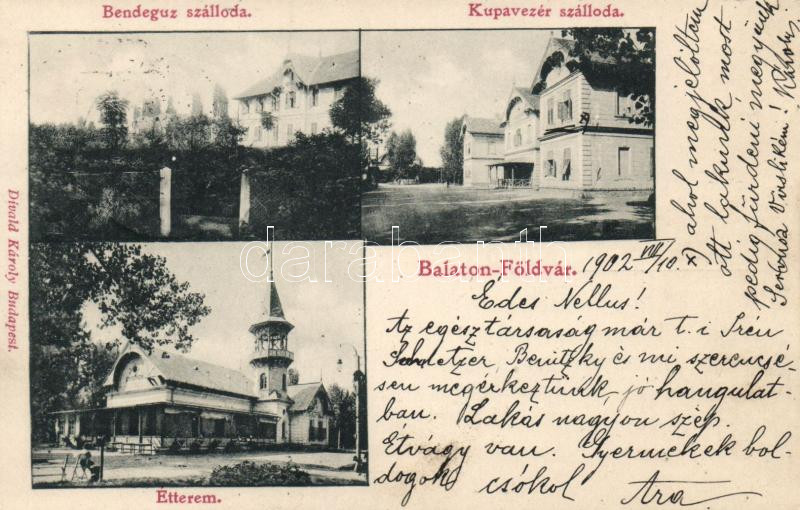 Bendeguz szálloda.
Kupavezér szálloda.
Divald Károly Budapest.
Étterem.
Balaton-Földvár.
1902 VII/10.
Édes Nellus!
Az egész társaság már t. i Irén
Benitzky és mi szerencsé-
sen megérkeztünk, jó hangulat-
ban. Lakás nagyon szép.
Étvágy van. Gyermekek bol-
dogok csókol Ara
x) ahol megjelöltem
ott lakunk most
pedig fürdeni megyünk
Servus ! Károly
darabanth